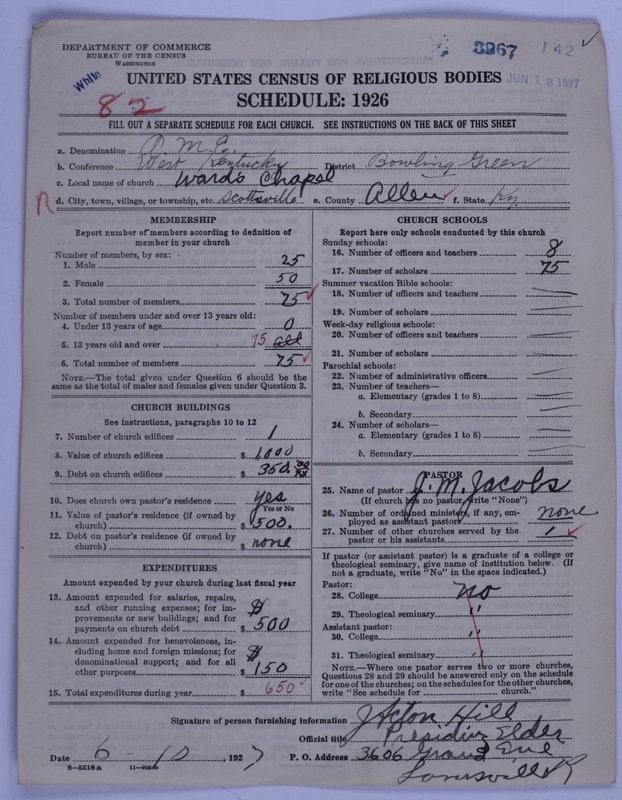 DEPARTMENT OF COMMERCE
BUREAU OF THE CENSUS
WASHINGTON
White
3967 142
JUN 13 1927
UNITED STATES CENSUS OF RELIGIOUS BODIES
82
SCHEDULE: 1926
FILL OUT A SEPARATE SCHEDULE FOR EACH CHURCH. SEE INSTRUCTIONS ON THE BACK OF THIS SHEET
a. Denomination M. E.
b. Conference West Kentucky District Bowling Green
c. Local name of church Wards Chapel
R d. City, town, village, or township, etc. Scottsville e. County Allen f. State Ky
MEMBERSHIP
Report number of members according to definition of member in your church
Number of members, by sex:
1. Male 25
2. Female 50
3. Total number of members 75
Number of members under and over 13 years old:
4. Under 13 years of age 0
5. 13 years old and over 75 all
6. Total number of members 75
NOTE.—The total given under Question 6 should be the
same as the total of males and females given under Question 3.
CHURCH BUILDINGS
See instructions, paragraphs 10 to 12
7. Number of church edifices 1
8. Value of church edifices $ 1,000
9. Debt on church edifices $ 350.00
10. Does church own pastor's residence yes
Yes or No
11. Value of pastor's residence (if owned by
church) $ 500.
12. Debt on pastor's residence (if owned by
church) $ none
EXPENDITURES
Amount expended by your church during last fiscal year
13. Amount expended for salaries, repairs,
and other running expenses; for im-
provements or new buildings; and for
payments on church debt $ $ 500
14. Amount expended for benevolences, in-
cluding home and foreign missions; for
denominational support; and for all
other purposes $ $ 150
15. Total expenditures during year $ 650
CHURCH SCHOOLS
Report here only schools conducted by this church
Sunday schools:
16. Number of officers and teachers 8
17. Number of scholars 75
Summer vacation Bible schools:
18. Number of officers and teachers
19. Number of scholars
Week-day religious schools:
20. Number of officers and teachers
21. Number of scholars
Parochial schools:
22. Number of administrative officers
23. Number of teachers—
a. Elementary (grades 1 to 8)
b. Secondary
24. Number of scholars—
a. Elementary (grades 1 to 8)
b. Secondary
PASTOR
25. Name of pastor J. M. Jacobs
(If church has no pastor, write "None")
26. Number of ordained ministers, if any, em-
ployed as assistant pastors none
27. Number of other churches served by the
pastor or his assistants 1
If pastor (or assistant pastor) is a graduate of a college or
theological seminary, give name of institution below. (If
not a graduate, write "No" in the space indicated.)
Pastor:
28. College no
29. Theological seminary "
Assistant pastor:
30. College "
31. Theological seminary "
NOTE.—Where one pastor serves two or more churches,
Questions 28 and 29 should be answered only on the schedule
for one of the churches; on the schedules for the other churches,
write "See schedule for church."
Signature of person furnishing information J Acton Hill
Official title Presiding Elder
Date 6-10, 1927 P. O. Address 3606 Grand Eve
8—5518a 11—9024b Louisville Ky